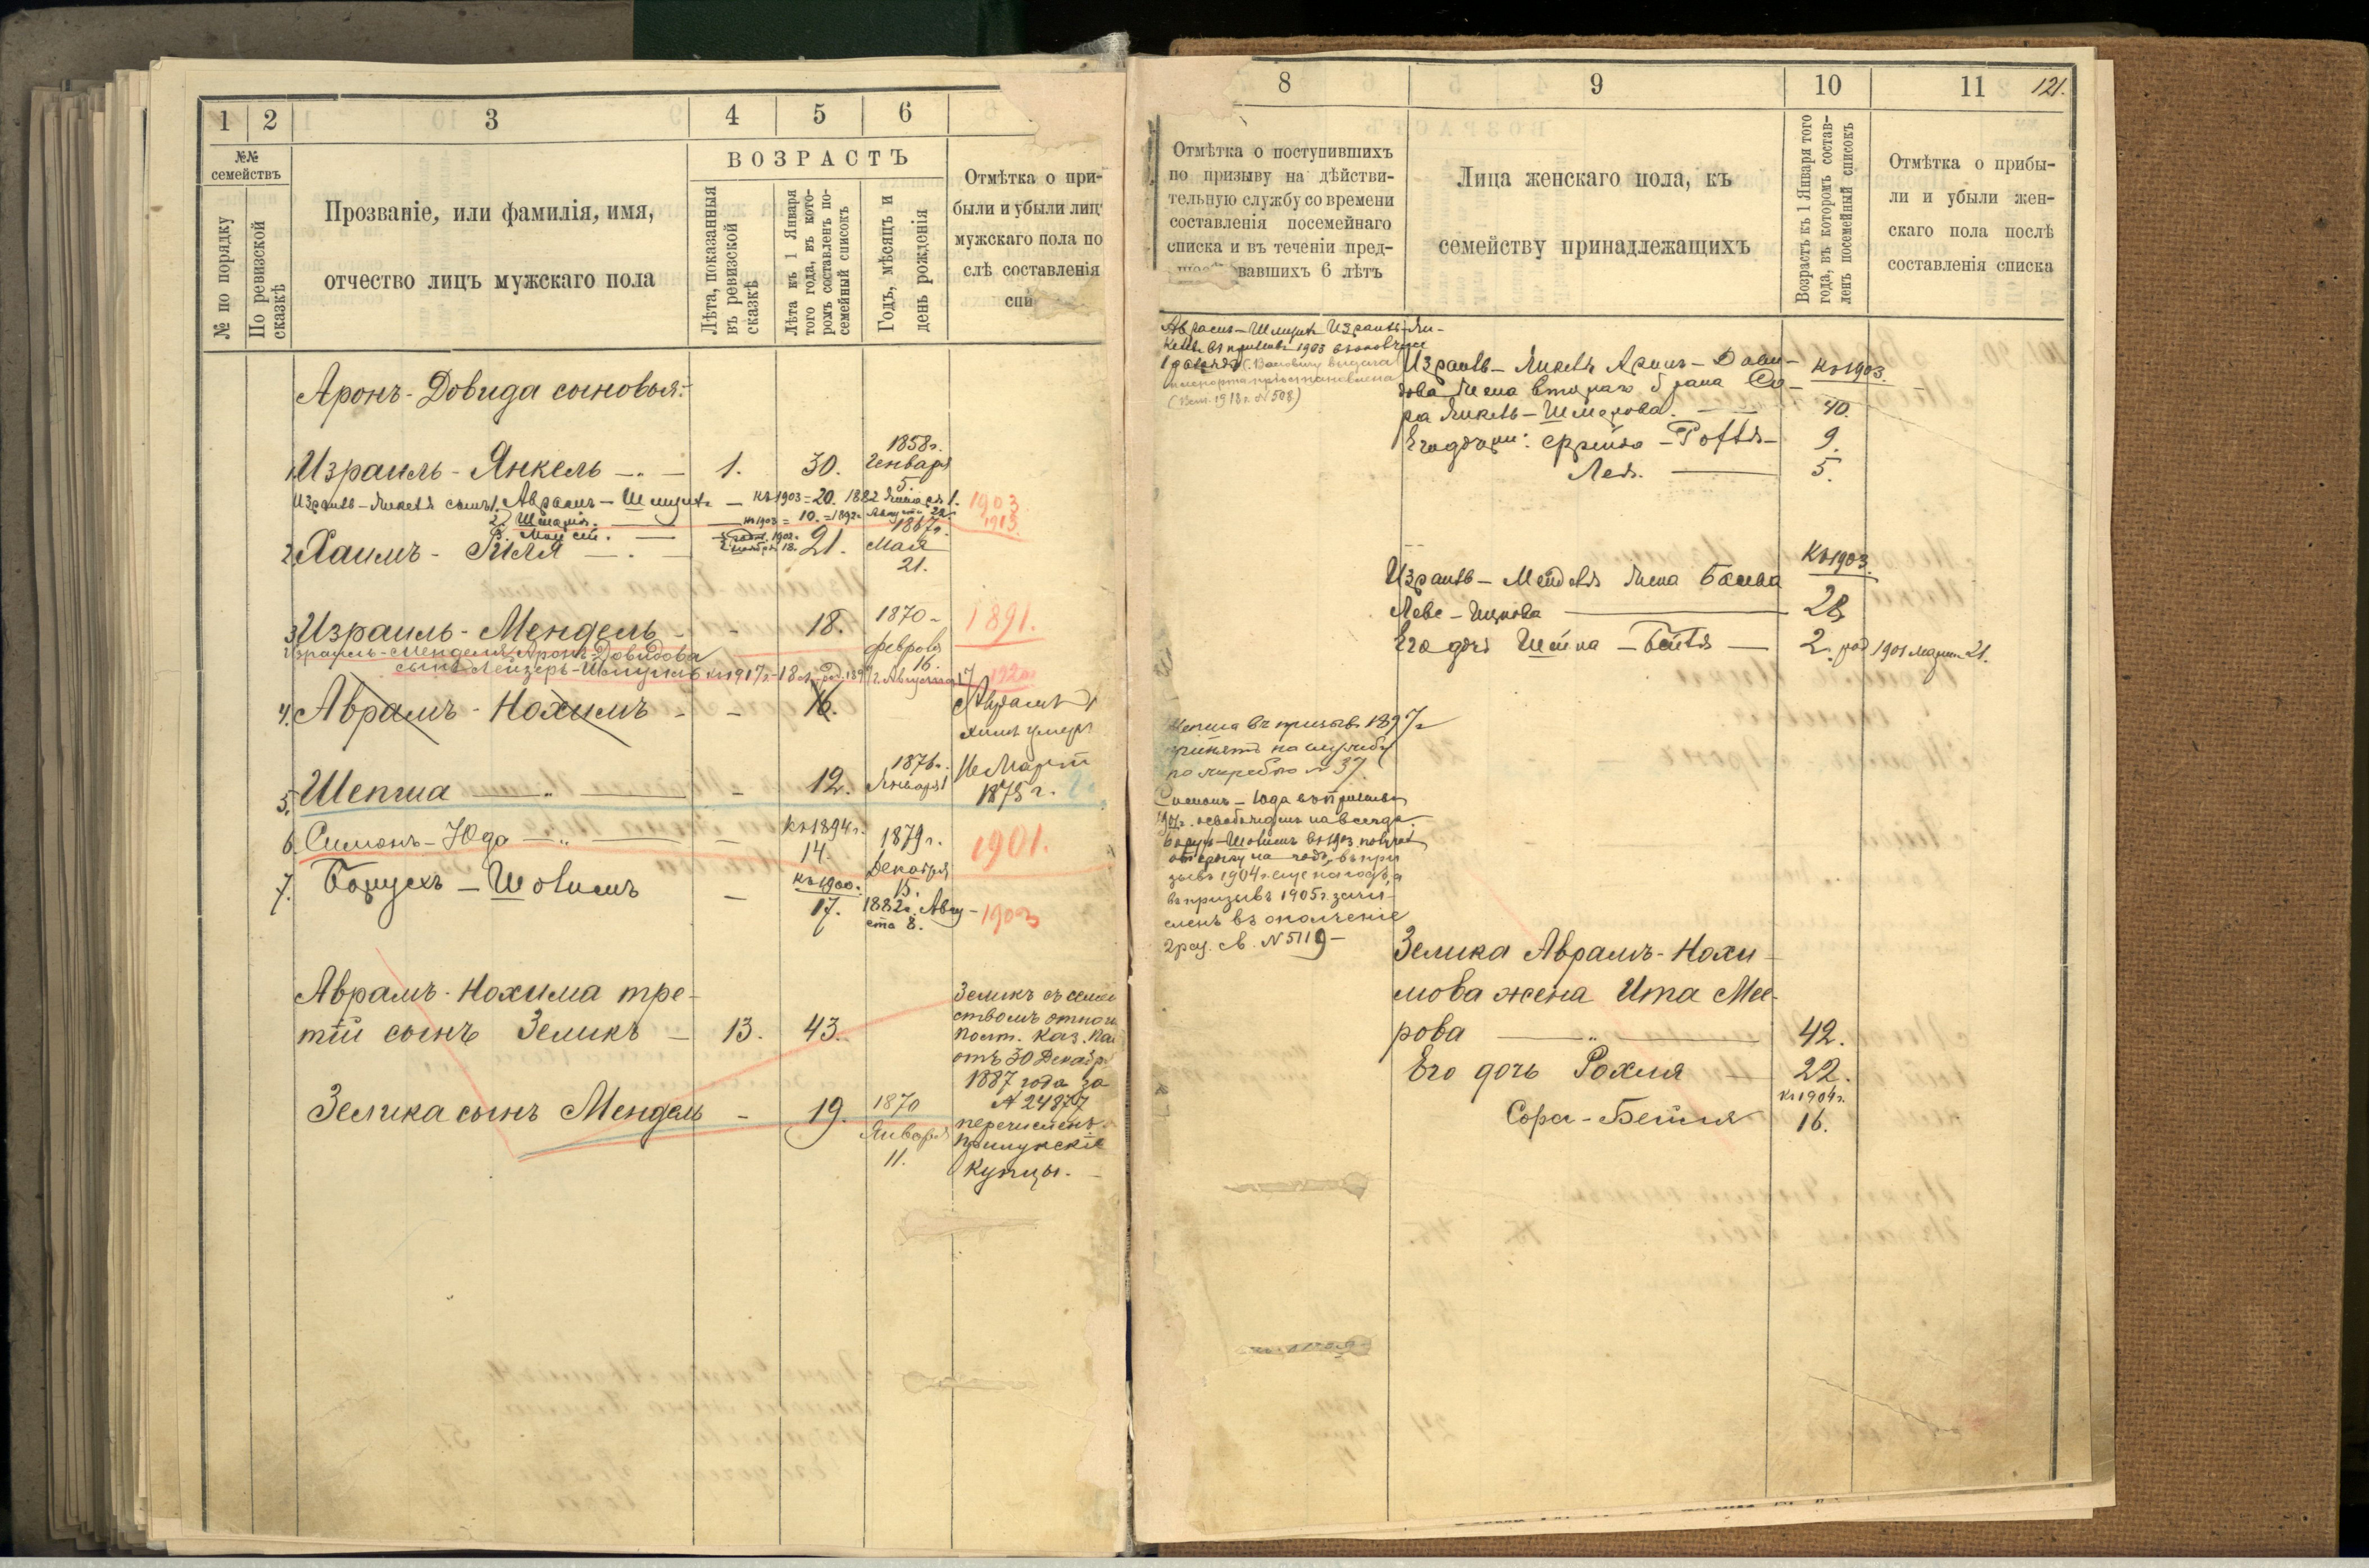 1 2 3 4 5 6
№№ семействъ
№ по порядку
По ревизской сказкѣ
Прозваніе, или фамилія, имя,
отчество лицъ мужскаго пола
ВОЗРАСТЪ
Лѣта, показанныя
въ ревизской
сказкѣ
Лѣта къ 1 Января
того года, въ кото-
ромъ составленъ по-
семейный списокъ
Годъ, мѣсяцъ и
день рожденія
Отмѣтка о при-
были и убыли лицъ
мужскаго пола по
слѣ составленія
спи
Аронъ-Довида сыновья:
1858 г.
1. Израиль-Янкель 1. 30. Генваря
5.
Израиль-Янкеля сынъ 1. Абрамъ-Шмуиль къ 1903 = 20. 1882 1. 1903
2. Шмарія. къ 1903 = 10. = 1892 Августа 22. 1913.
3. 1902.
1867 г.
2. Хаимъ- 21. Мая
21.
1870
3. Израиль-Мендель 18. февраля 1891.
16.
Израиль-Менделя Аронъ-Довидова
сынъ Лейзеръ-Шмуилъ къ 1917 г. 18 л. род. 189 г. Августа 17 1920
4. Абрамъ-Нохимъ 16. Абрамъ
химъ умеръ
1876 г.
5. Шепша 12. Января 1
Не Март
1875 г.
къ 1894 г.
6. Симонъ-Юда 14. 1879 г. 1901.
Декабря
15.
къ 1900.
7. Борухъ-Шовимъ 17. 1882 г. Авгу-
ста 8. 1903
Абрамъ-Нохима тре-
тій сынъ Зеликъ 13. 43.
Зеликъ съ семей
ствомъ отнош
Полт. Каз. Пал
отъ 30 Декабр
1887 года за
№ 24877
перечисленъ
Прилукскіе
купцы.
Зелика сынъ Мендель 19. 1870
Января
11.
8 9 10 11 121.
Отмѣтка о поступившихъ
по призыву на дѣйстви-
тельную службу со времени
составленія посемейнаго
списка и въ теченіи пред-
вавшихъ 6 лѣтъ
Лица женскаго пола, къ
семейству принадлежащихъ
Возрастъ къ 1 Января того
года, въ которомъ состав-
ленъ посемейный списокъ
Отмѣтка о прибы-
ли и убыли жен-
скаго пола послѣ
составленія списка
Абрамъ-Шмуилъ Израиль-Ян-
келевъ въ призывѣ 1903 въ ополченіе
1 разряда
(1918 г. № 508)
Израиль-Янкель Аронъ-Дави- къ 1903.
дова жена втораго брака Со-
ра Янкель-Шмерова. 40.
Его дочери: Фрейда- 9.
Лея. 5.
къ 1903.
Израиль-Менделя жена Басева
Лейб-Ицкова 28
Его дочь Шейна-Бейля 2. род 1901 Марта 21.
Шепша въ призывѣ 1897 г
принятъ на службу
по жребію № 37.
Симонъ-Юда въ призывѣ
1901 г. освобожденъ навсегда.
Борухъ-Шовимъ въ 1903 получил
отсрочку на годъ, въ при
зывъ 1904 г. еще на годъ, а
въ призывъ 1905 г. зачи-
сленъ въ ополченіе
2 раз. св. № 5119
Зелика Абрамъ-Нохи-
мова жена Ита Мее-
рова 42.
Его дочь Рохля 22.
къ 1904 г.
Сора-Бейля 16.